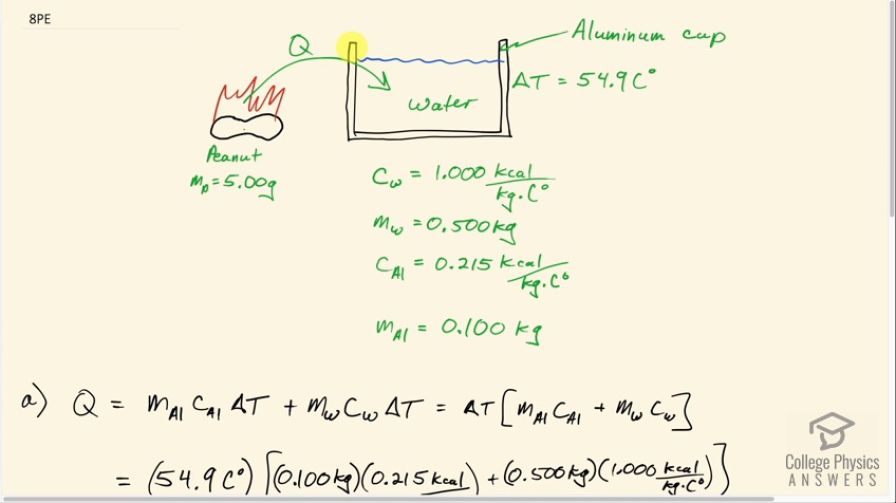 8PE
Q
Aluminum cup
ΔT = 54.9 C°
water
Peanut
m_p = 5.00g
C_w = 1.000 kcal/kg·C°
m_w = 0.500kg
C_Al = 0.215 kcal/kg·C°
m_Al = 0.100 kg
a) Q = m_Al C_Al ΔT + m_w C_w ΔT = ΔT [m_Al C_Al + m_w C_w]
= (54.9 C°) [(0.100kg)(0.215 kcal) + (0.500kg)(1.000 kcal/kg·C°)]
College Physics
ANSWERS